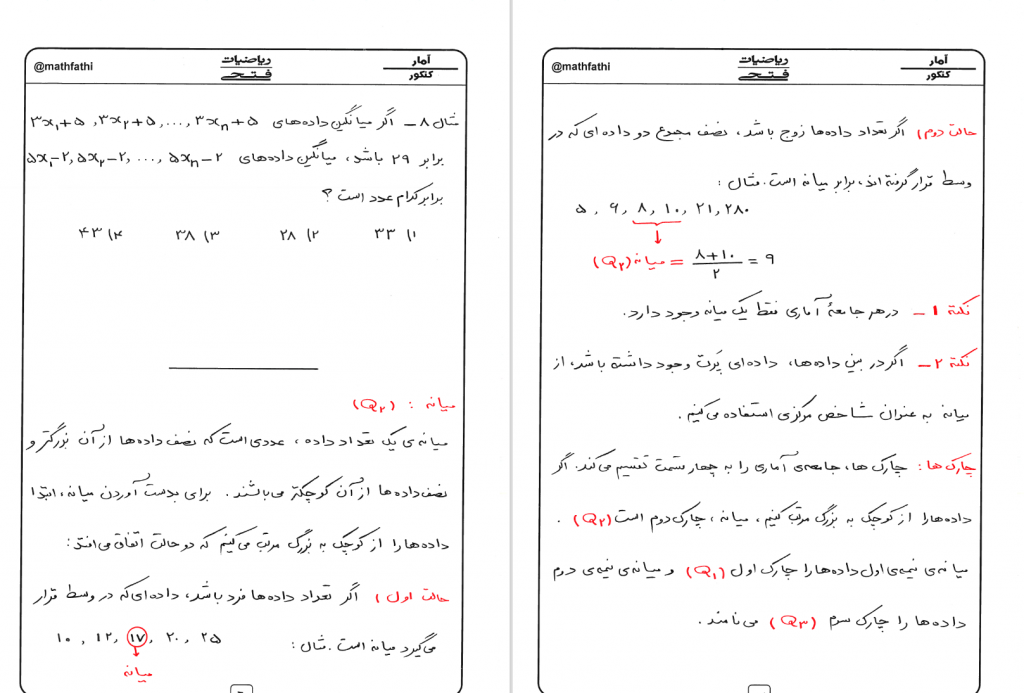 @mathfathi
ریاضیات
فتحی
آمار
کنکور
مثال ۸ – اگر میانگین داده‌های ۳x₁+۵ , ۳x₂+۵ , ... , ۳xₙ+۵
برابر ۲۹ باشد، میانگین داده‌های ۵x₁-۲ , ۵x₂-۲ , ... , ۵xₙ-۲
برابر کدام عدد است؟
۱) ۳۳ ۲) ۲۸ ۳) ۳۸ ۴) ۴۳
میانه : (Q₂)
میانه‌ی یک تعداد داده، عددی است که نصف داده‌ها از آن بزرگتر و
نصف داده‌ها از آن کوچکتر می‌باشند. برای بدست آوردن میانه، ابتدا
داده‌ها را از کوچک به بزرگ مرتب می‌کنیم که دو حالت اتفاق می‌افتد:
حالت اول) اگر تعداد داده‌ها فرد باشد، داده‌ای که در وسط قرار
می‌گیرد میانه است. مثال: ۱۰ , ۱۲ , ۱۷ , ۲۰ , ۲۵
میانه
@mathfathi
ریاضیات
فتحی
آمار
کنکور
حالت دوم) اگر تعداد داده‌ها زوج باشد، نصف مجموع دو داده‌ای که در
وسط قرار گرفته‌اند، برابر میانه است. مثال:
۵ , ۶ , ۸ , ۱۰ , ۲۱ , ۲۸۰
میانه (Q₂) = (۸+۱۰)/۲ = ۹
نکته ۱ – در هر جامعهٔ آماری فقط یک میانه وجود دارد.
نکته ۲ – اگر در بین داده‌ها، داده‌ای پَرت وجود داشته باشد، از
میانه به عنوان شاخص مرکزی استفاده می‌کنیم.
چارک‌ها: چارک‌ها، جامعه‌ی آماری را به چهار قسمت تقسیم می‌کند. اگر
داده‌ها را از کوچک به بزرگ مرتب کنیم، میانه، چارک دوم است (Q₂).
میانه‌ی نیمه‌ی اول داده‌ها را چارک اول (Q₁) و میانه‌ی نیمه‌ی دوم
داده‌ها را چارک سوم (Q₃) می‌نامند.